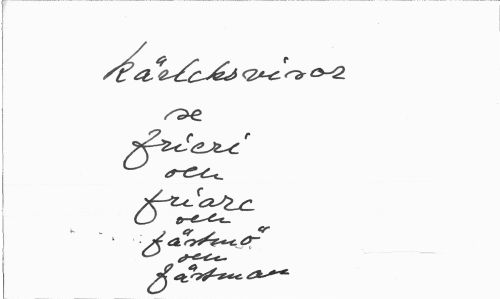 kärleksvisor
se
frieri
och
friare
och
fästmö
och
fästman